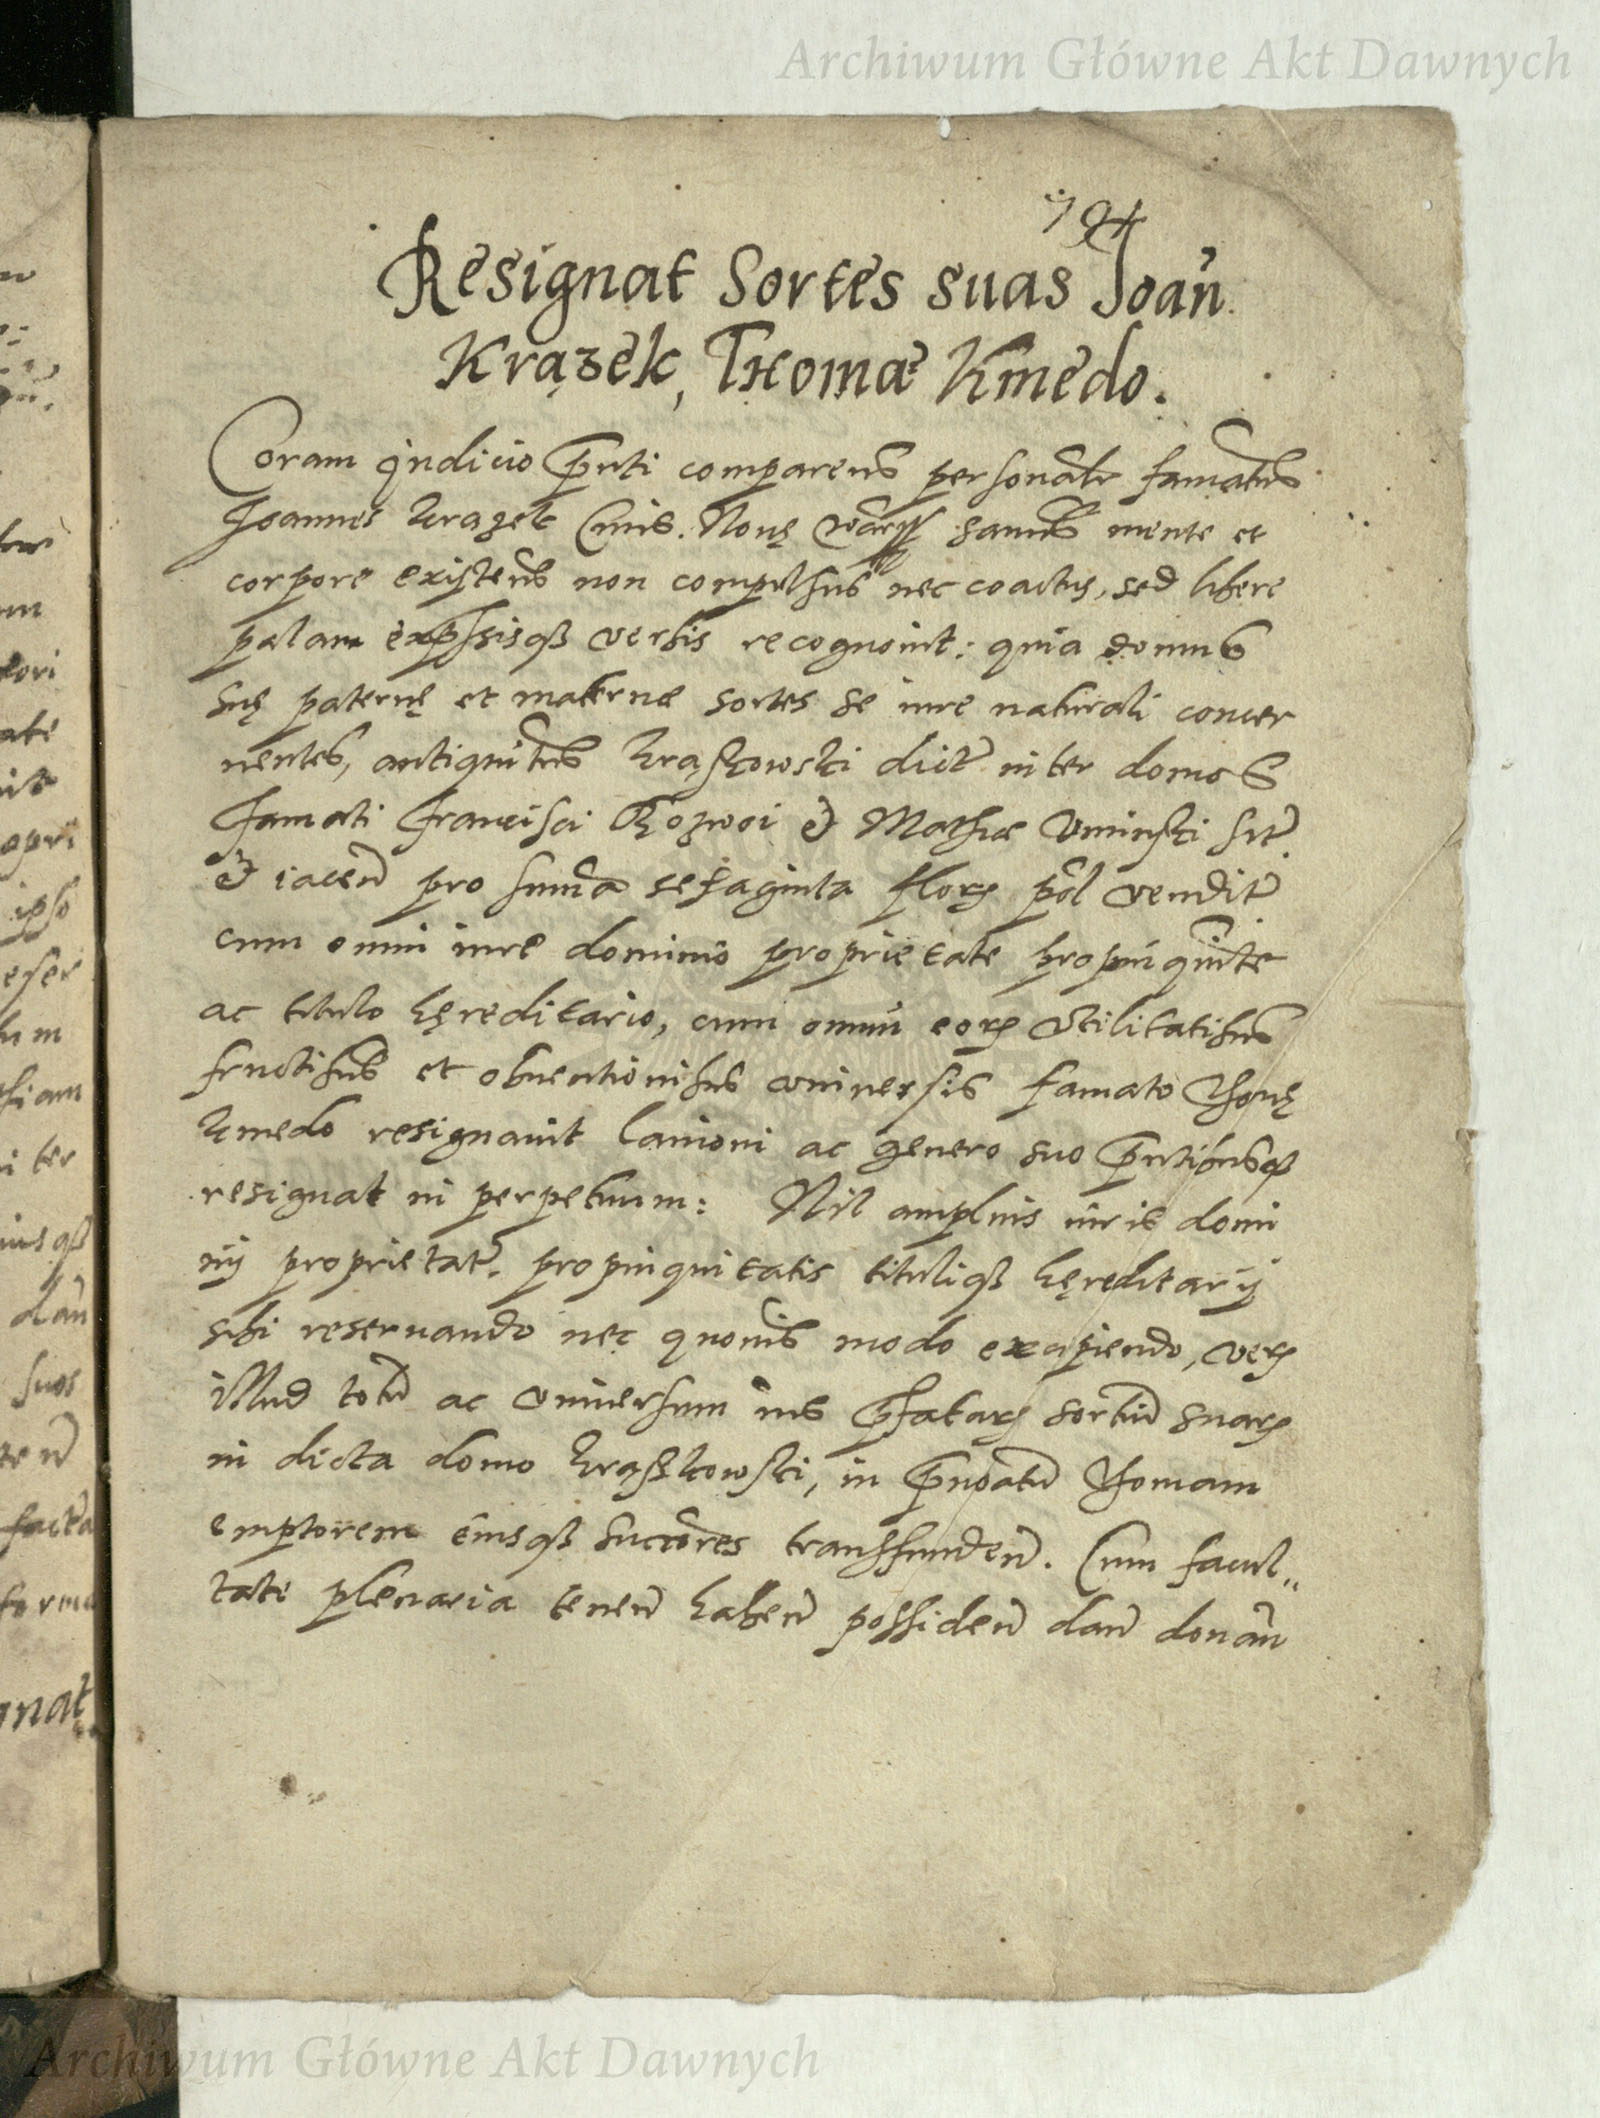 Archiwum Główne Akt Dawnych
Resignat Sortes suas Joan̄
Krązek, Thomæ Kmedo.
Coram Judicio p̄nti comparens personalr famatus
Joannes Krązek Civis Nouę Vars. sanus mente et
corpore existens non compulsus nec coactus, sed libere
palam exp̄ssisqȝ verbis recognouit: quia domus
suę paternę et maternæ sortes se iure naturali concer
nentes, antiquitus Krąszkowski dict inter domos
famati Francisci et Mathiæ Vminski sit
et iacen̄ pro summa sexaginta flor pol vendit
cum omni iure dominio proprietate propinquitate
ac titulo hęreditario, cum omnī eorȝ Vtilitatibus
fructibus et obuentionibus vniuersis famato Thomę
Kmedo resignauit lanioni ac genero suo p̄ntibusqȝ
resignat in perpetuum: Nil amplius iuris domi
nij proprietat. propinquitatis tituliqȝ hęreditarij
sibi reseruando nec quouis modo excipiendo, verȝ
illud totū ac vniuersum ius p̄fatarȝ sortiū suarȝ
in dicta domo Krąszkowski, in p̄noatū Thomam
emptorem eiusqȝ succores transfunden̄. Cum facul„
tate plenaria tenen̄ haben̄ possiden̄ dan̄ donan̄
Archiwum Główne Akt Dawnych